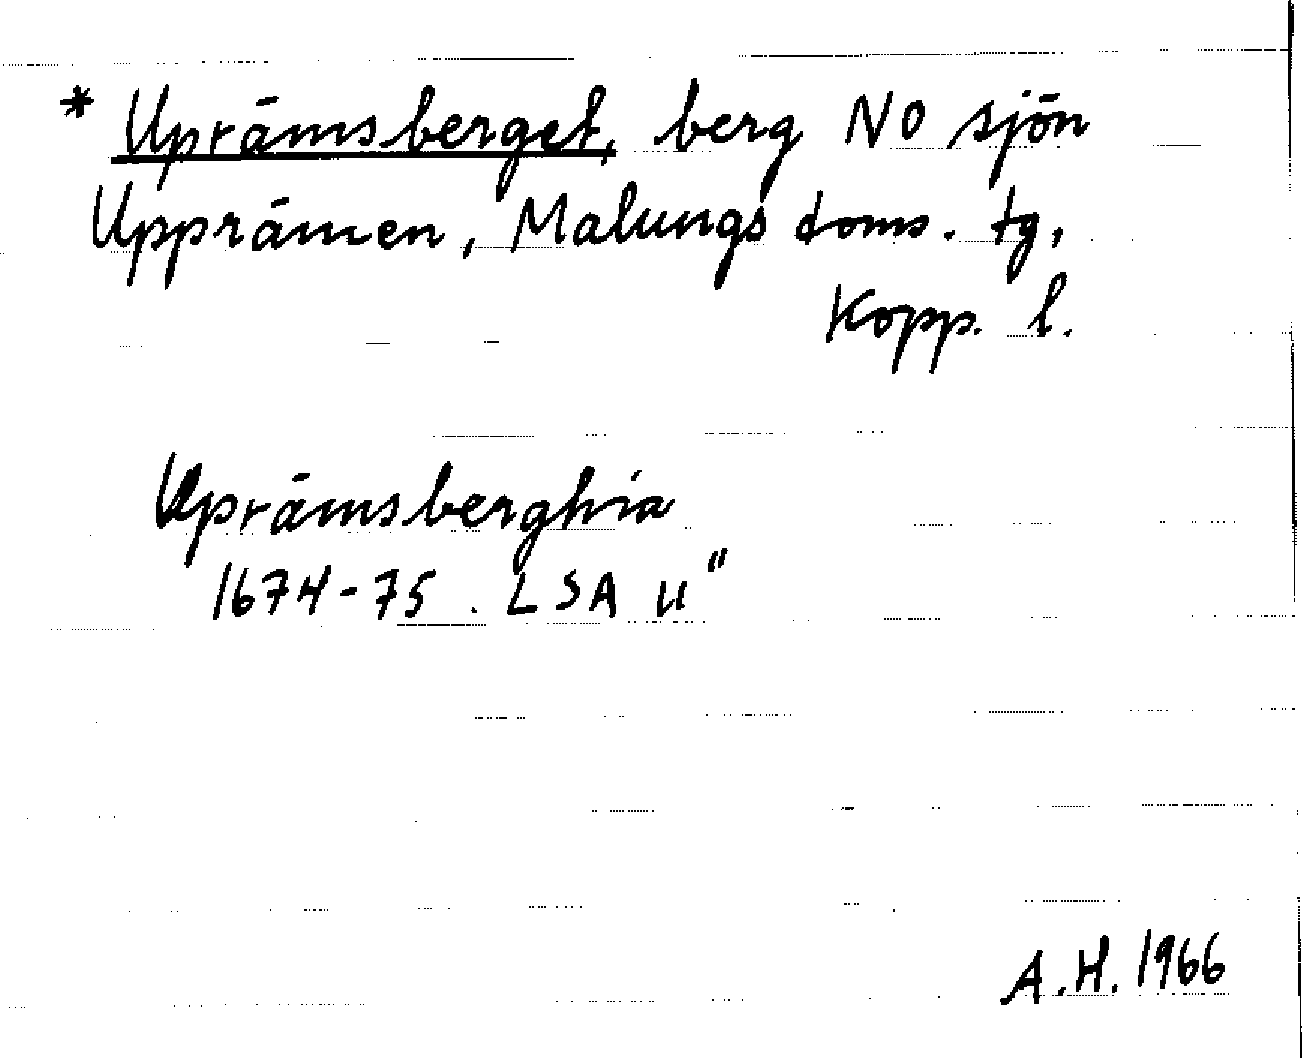 * Uprämsberget, berg NO sjön
Upprämen, Malungs doms. tg,
Kopp. l.
Uprämsberghia
1674-75. LSA U"
A.H. 1966